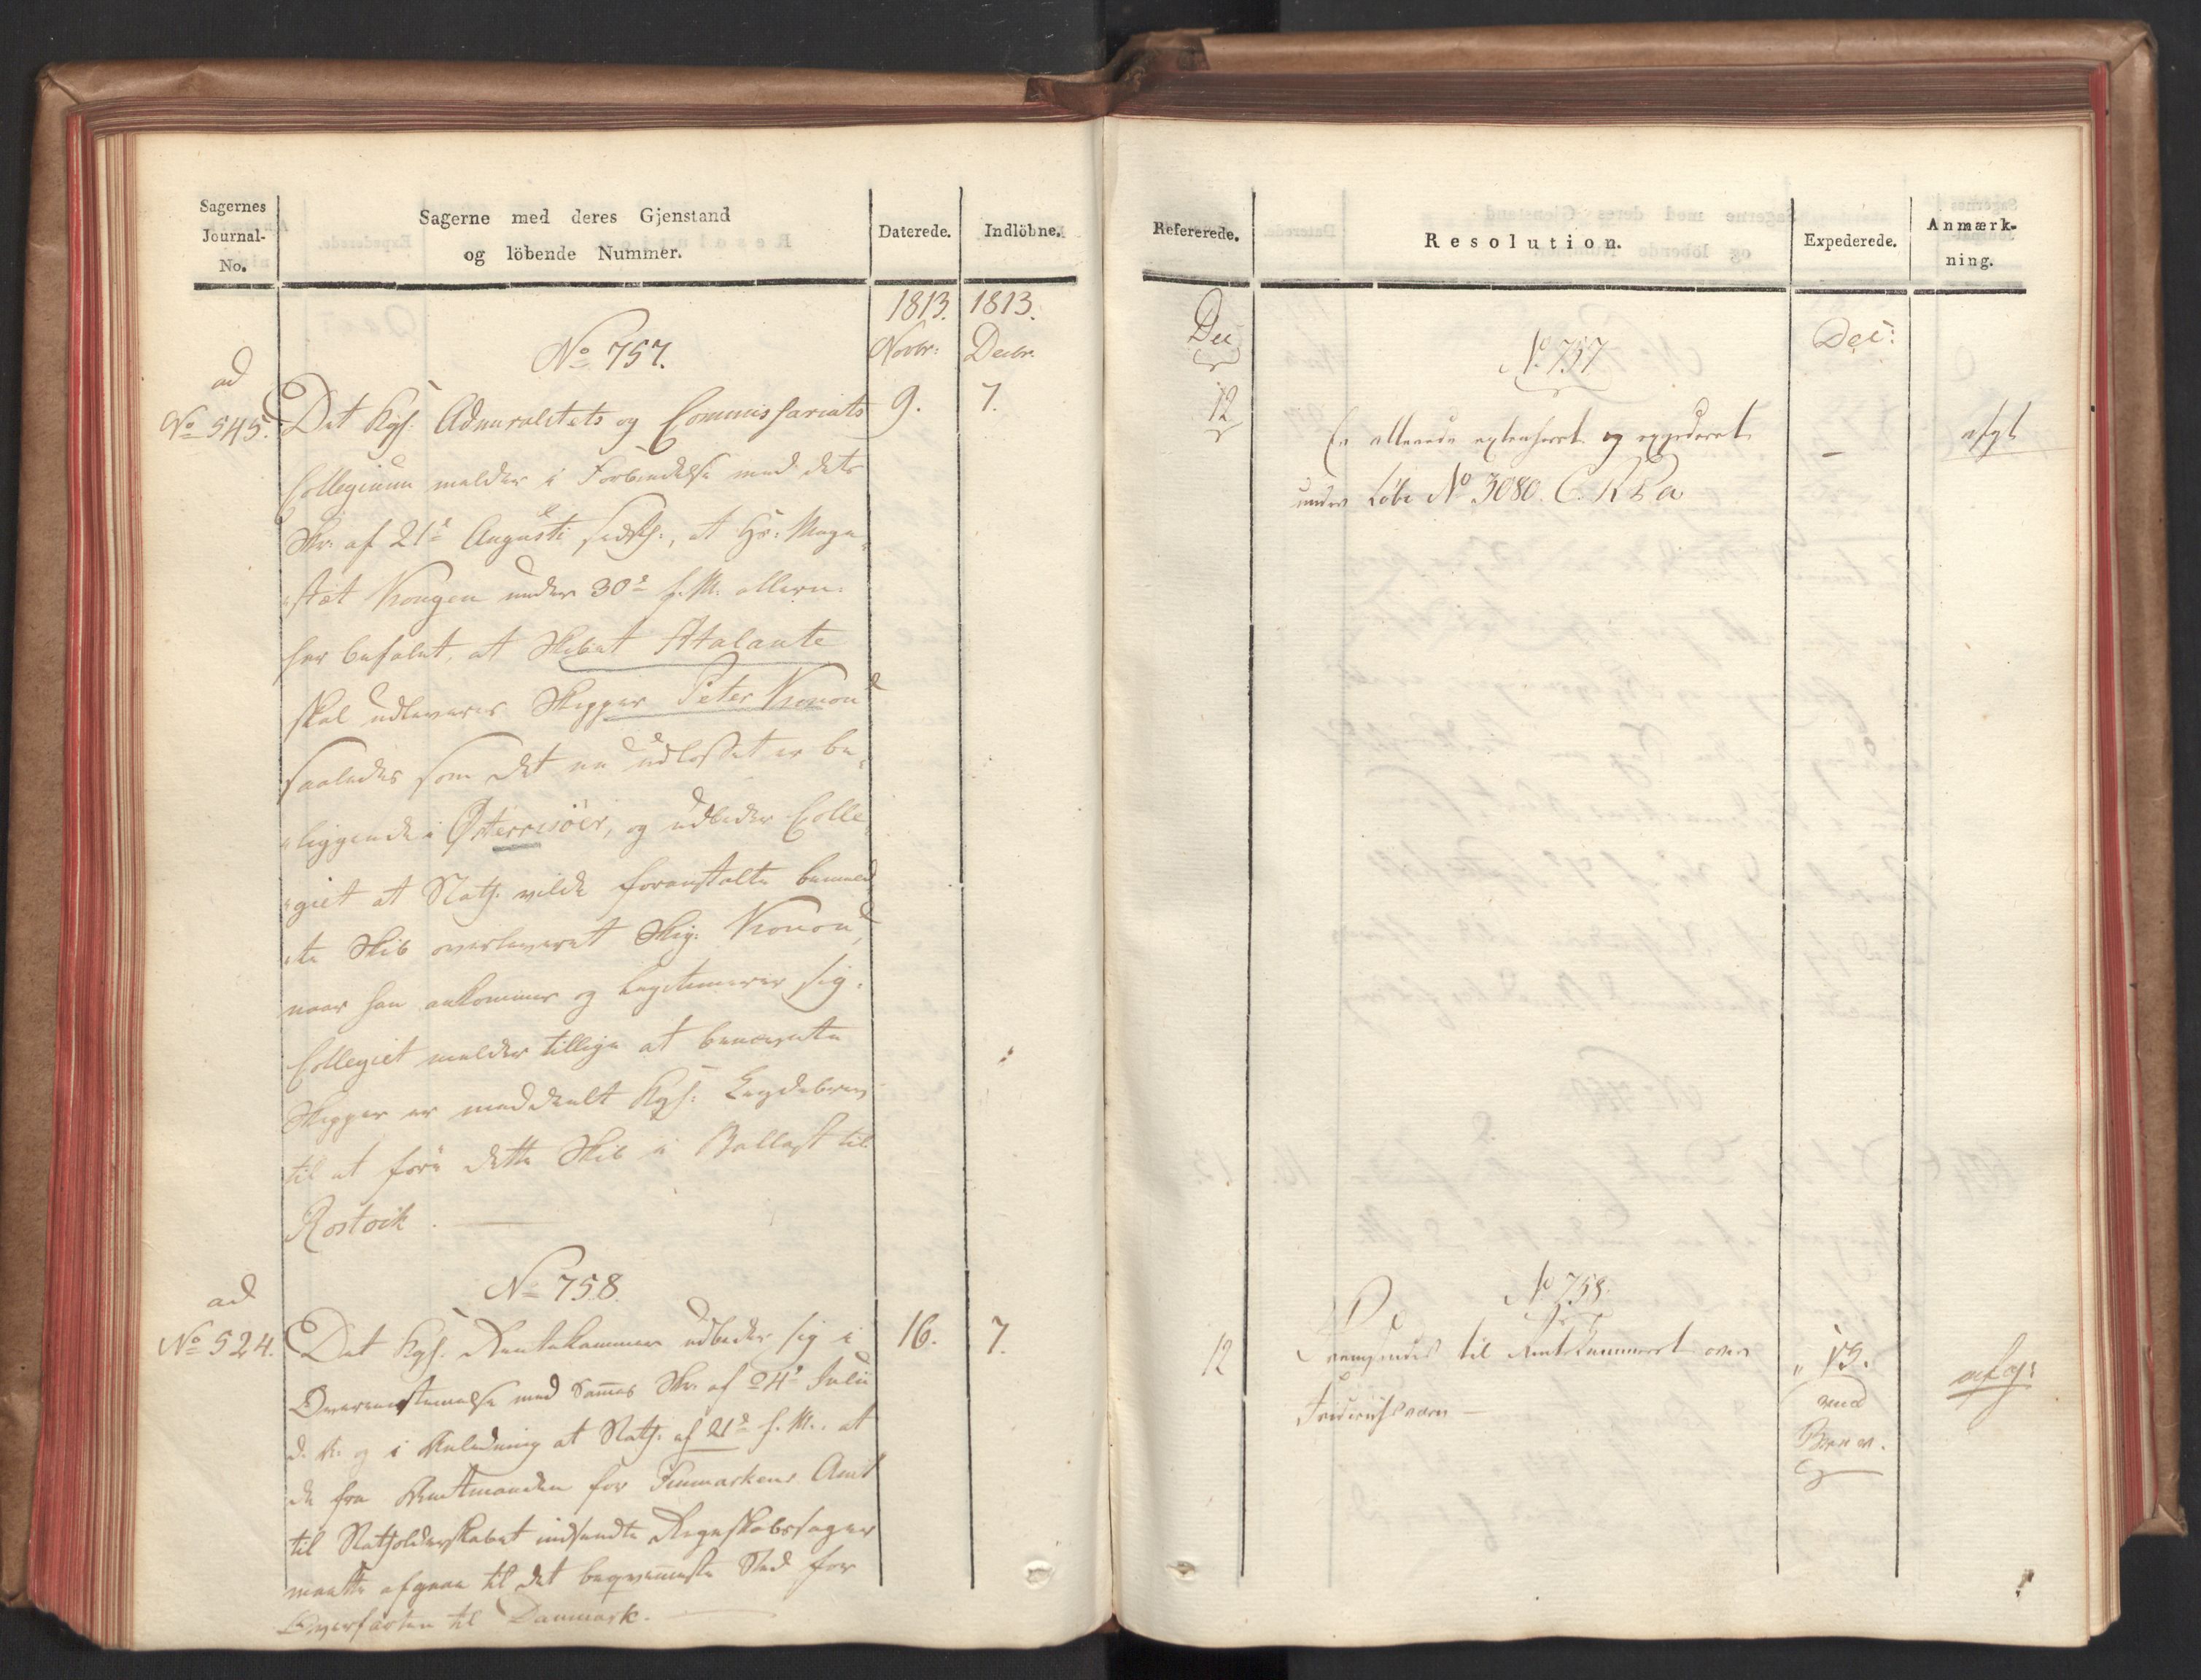 Sagernes
Journal-
No.
Sagerne med deres Gjenstand
og löbende Nummer.
Daterede.
Indlöbne.
1813. 1813.
Novbr: Decbr.
No 757.
ad
No 545.
9. 7.
Det Kgl. Admiralitets og Commissariats
Collegium melder i Forbindelse med dets
Skr: af 21de Augusti sidstl., at Hs: Maje-
stæt Kongen under 30te f. M. allern:
har befalet, at Skibet Atalante
skal udleveres Skipper Peter Konow
saaledes som det nu udlosset er be-
liggende i Østerrisöer, og udbeder Colle-
giet at Stath. vilde foranstalte bemeld-
te Skib overleveret Skip: Konow,
naar han ankommer og legitimerer sig.
Collegiet melder tillige at benævnte
Skipper er meddeelt Kgl: Leydebrev
til at före dette Skib i Ballast til
Rostock.
No 758.
ad
No 524.
16. 7.
Det Kgl. Rentekammer udbeder sig i
Overensstemmelse med Sammes Skr. af 24de Julii
d. A. og i Anledning af Stath. af 21de f. M., at
de fra Amtmanden for Finmarkens Amt
til Statholderskabet indsendte Regnskabssager
maatte afgaae til det beqvemmeste Sted for
Overfarten til Danmark.
Refererede.
Resolution.
Expederede.
Anmærk-
ning.
Dec
Dec:
No 757
12
Er allerede extraheret og expederet
under Löbe No 3080. C. K
–
afgt
No 758.
12
Fremsendes til Rentekammeret over
Friderichsværn –
" 13.
med
Brev.
afgt